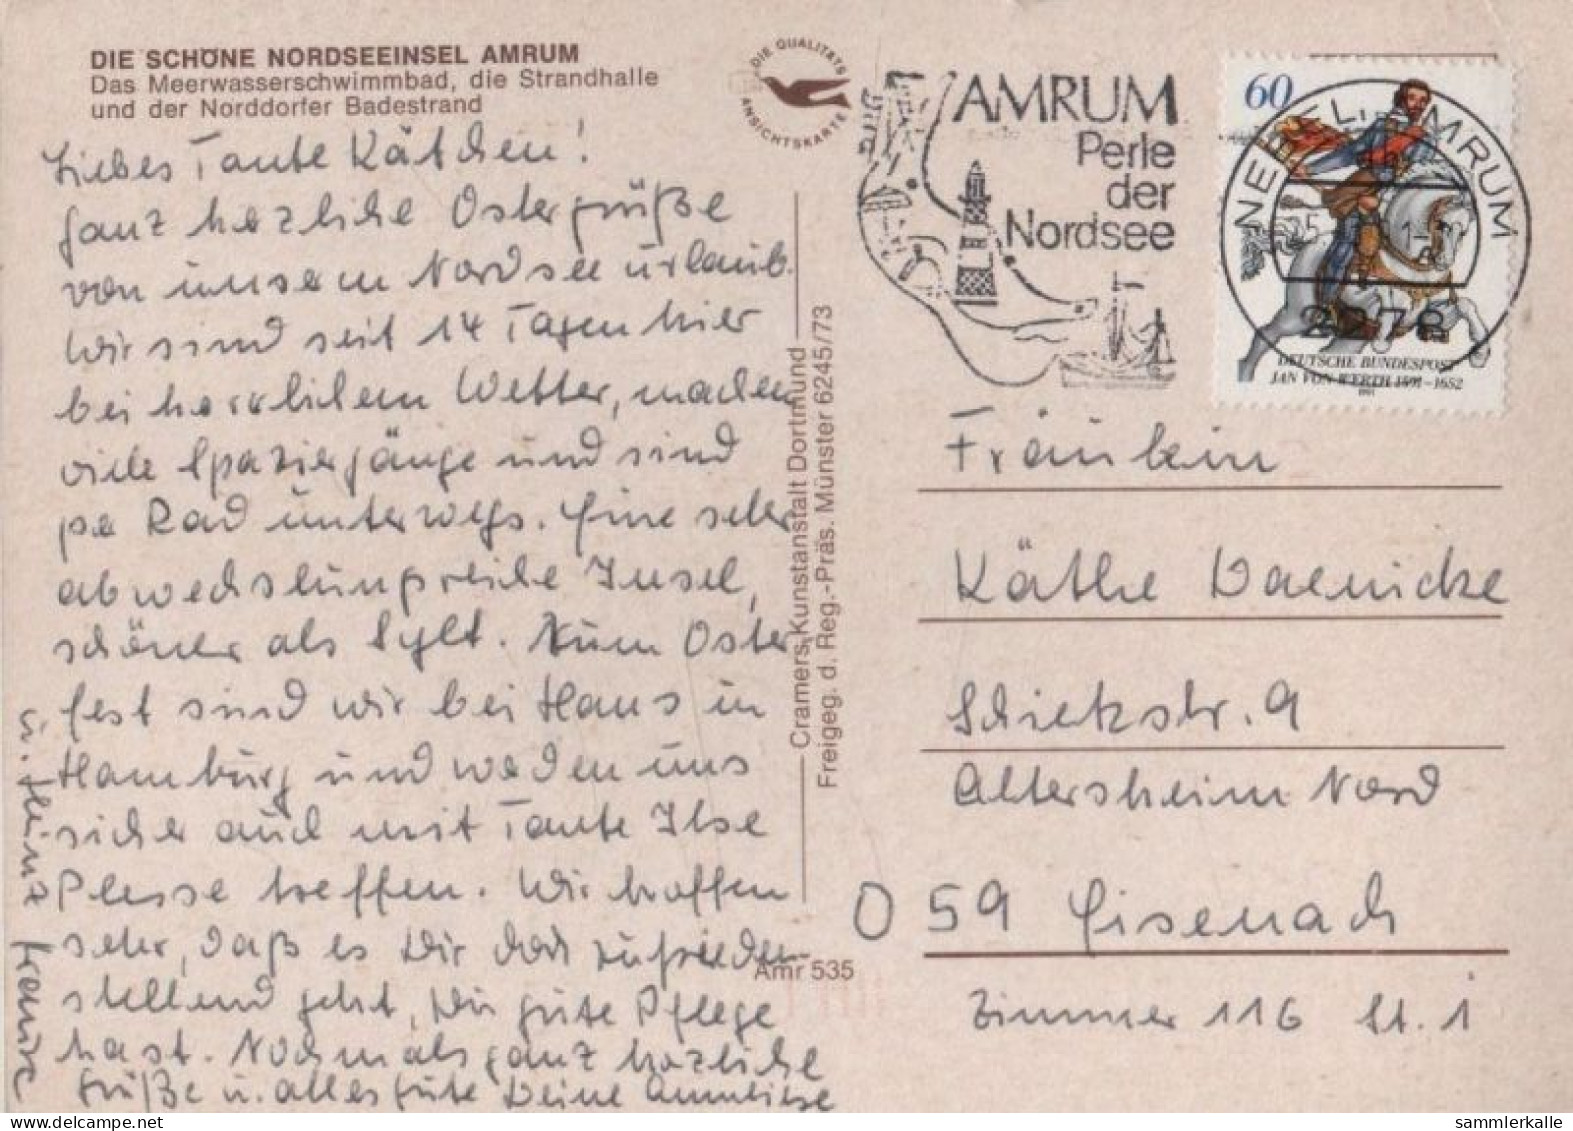 DIE SCHÖNE NORDSEEINSEL AMRUM
Das Meerwasserschwimmbad, die Strandhalle
und der Norddorfer Badestrand
DIE QUALITÄTS
ANSICHTSKARTE
Liebes Tante Kätchen!
ganz herzliche Ostergrüße
von unserm Nordseeurlaub.
Wir sind seit 14 Tagen hier
bei herrlichem Wetter, machen
viele Spaziergänge und sind
per Rad unterwegs. Eine sehr
abwechslungsreiche Insel,
schöner als Sylt. Zum Oster
fest sind wir bei Haus in
Hamburg und werden uns
sicher auch mit Tante Ilse
Plesse treffen. Wir hoffen
sehr, daß es Dir doch zufrieden-
stellend geht, Du gute Pflege
hast. Nochmals ganz herzliche
Grüße u. alles Gute Deine Anneliese
u. Heinz
Cramers Kunstanstalt Dortmund
Freigeg. d. Reg.-Präs. Münster 6245/73
Amr 535
AMRUM
Perle
der
Nordsee
60
NEBEL, AMRUM
2278
DEUTSCHE BUNDESPOST
JAN VON WERTH 1591-1652
1991
Fräulein
Käthe Daenicke
Schietzstr. 9
Altersheim Nord
O 59 Eisenach
Zimmer 116 St. 1
sammlerkalle